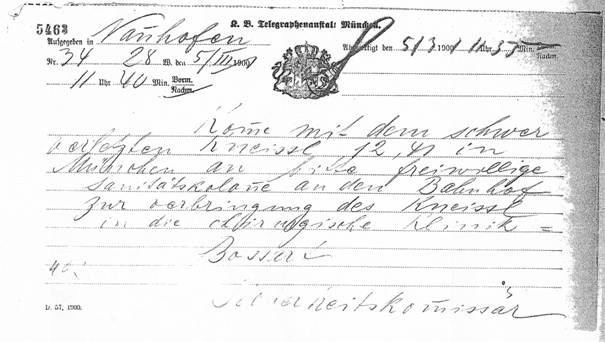 5463
K. B. Telegraphenanstalt München.
Aufgegeben in Nanhofen
Nr. 34 28 W. den 5/III 1900
11 Uhr 40 Min. Vorm. Nachm.
den 5/3 1901 11 Uhr 55 Min. Vorm. Nachm.
Kome mit dem schwer
verletzten Kneissl 12,41 in
München an bitte freiwillige
sanitätskolone an den Bahnhof
zur verbringung des Kneissl
in die chirurgische Klinik =
Bossert
D. 57, 1900.